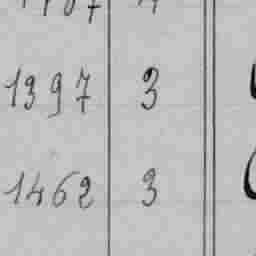 1397 3
1462 3